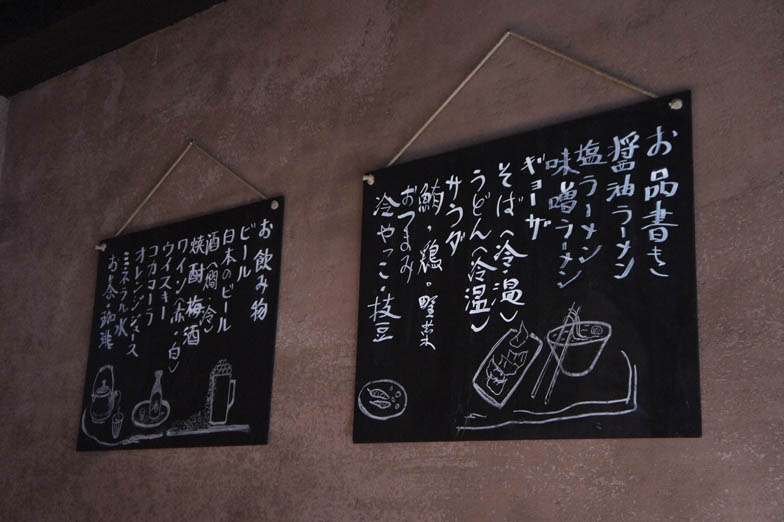 お品書き
醤油ラーメン
塩ラーメン
味噌ラーメン
ギョーザ
そば(冷・温)
うどん(冷・温)
サラダ
鮪・鶏・野菜
おつまみ
冷やっこ・枝豆
お飲み物
ビール
日本のビール
酒(燗・冷)
焼酎梅酒
ワイン(赤・白)
ウイスキー
コカコーラ
オレンジジュース
ミネラル水
お茶・珈琲